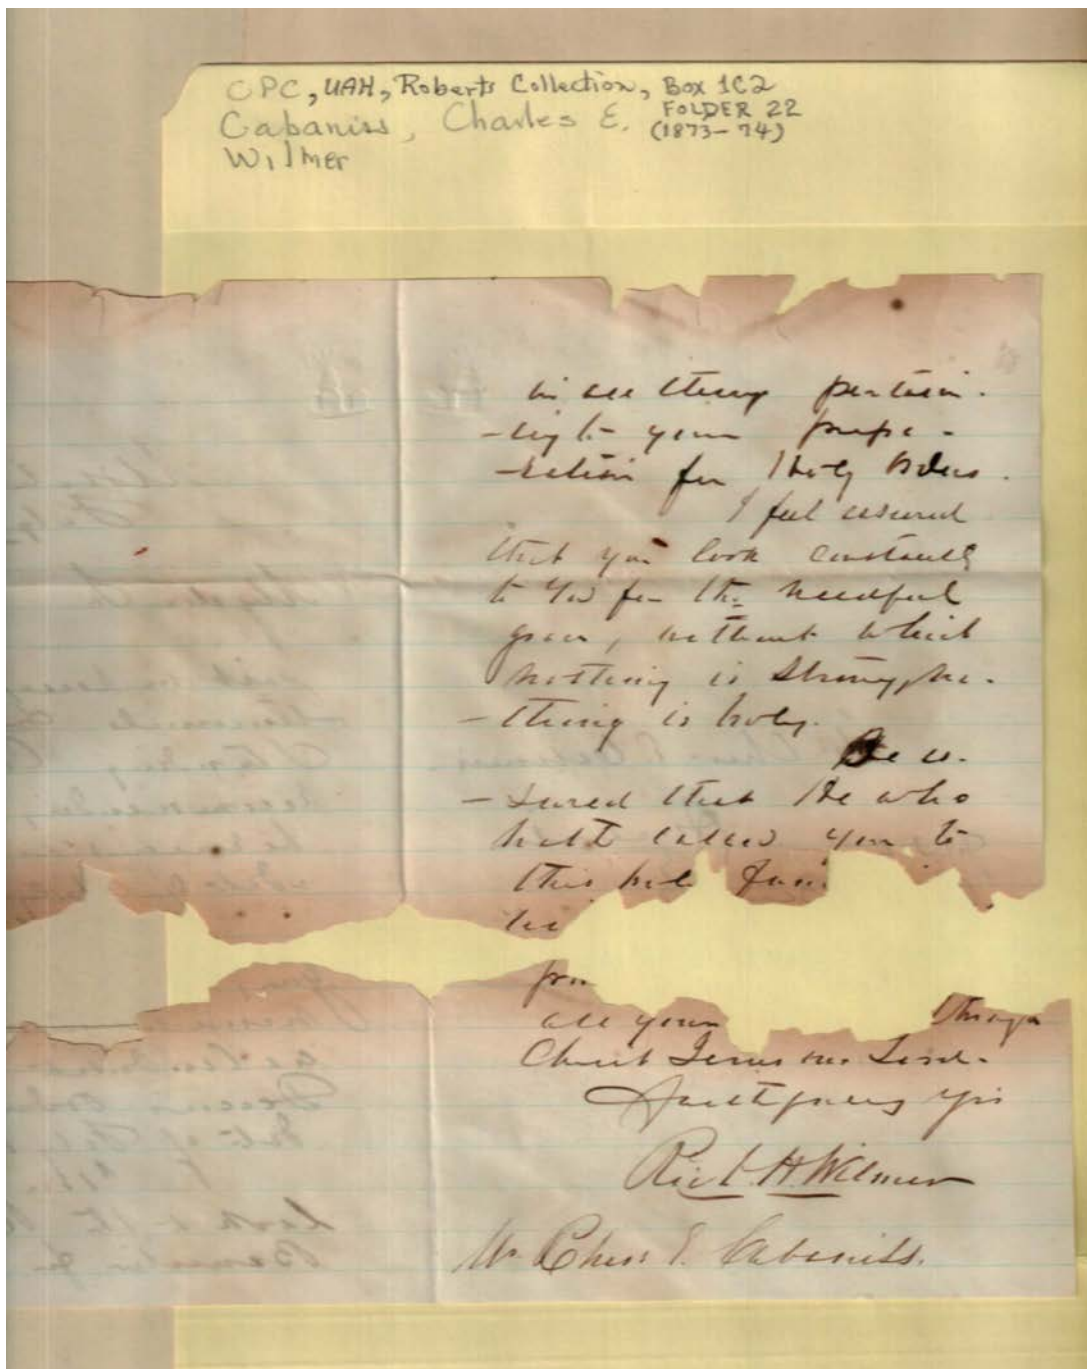 CPC, UAH, Roberts Collection, Box 1C2
FOLDER 22
Cabaniss, Charles E. (1873-74)
Wilmer
in all things pertain-
-ing to your prepa-
-ration for Holy Orders.
I feel assured
that you look constantly
to God for the needful
grace, without which
nothing is strong, no-
-thing is holy.
Be as-
-sured that He who
hath called you to
this
all your through
Christ Jesus our Lord.
Faithfully yrs
Richd. H Wilmer
Mr Chas E. Cabaniss.